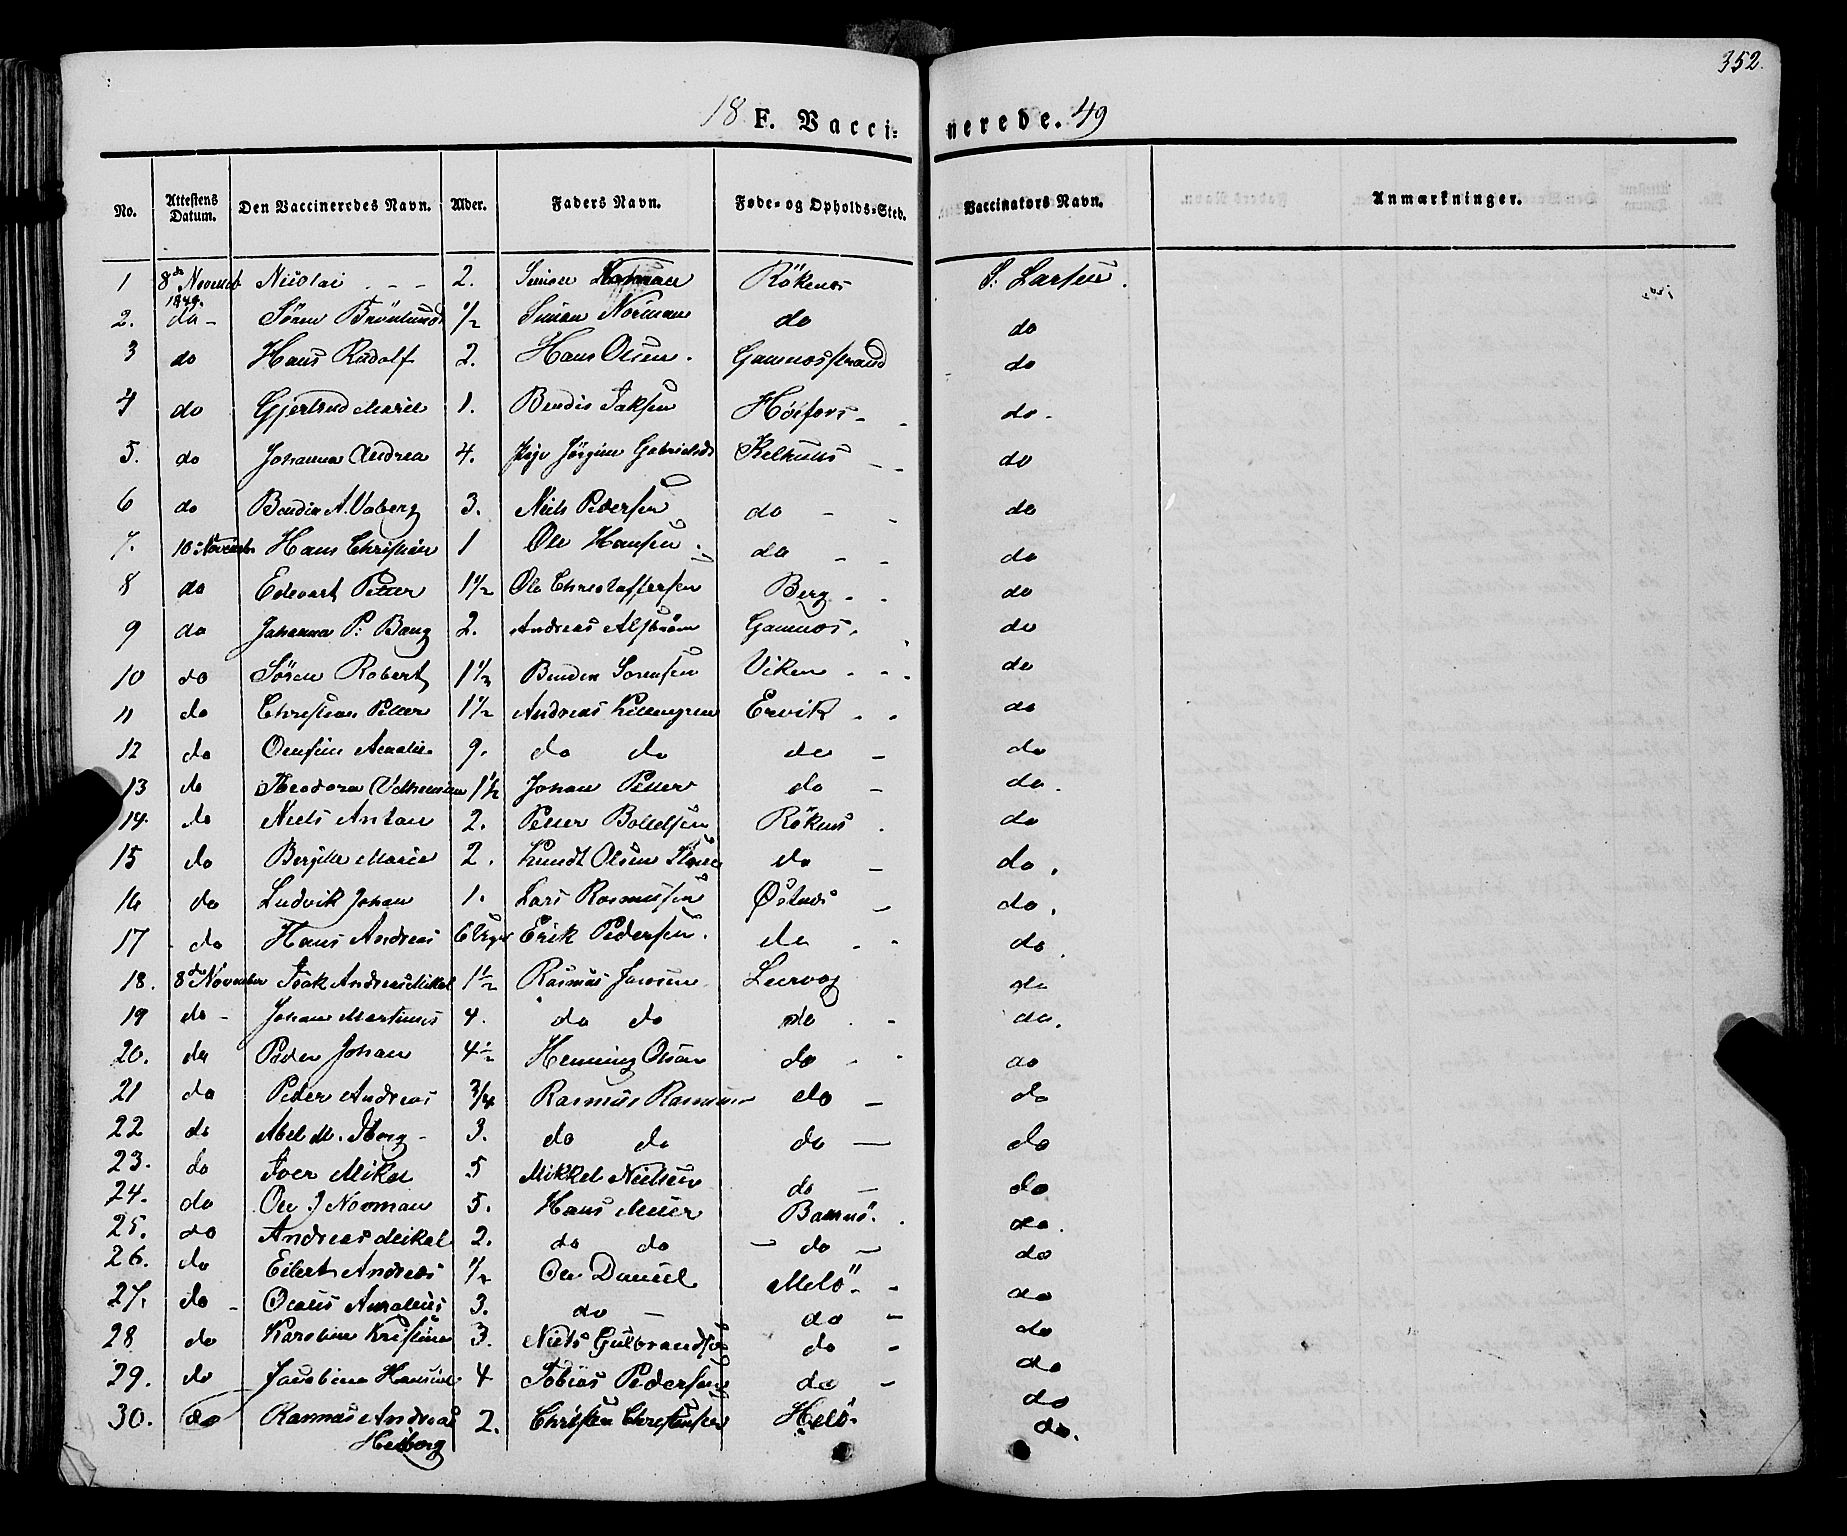 352.
18 F. Vaccinerede. 49
No. Attestens Datum. Den Vaccineredes Navn. Alder. Faders Navn. Føde- og Opholds-Sted. Vaccinators Navn. Anmærkninger.
1 8de Novemb 1849. Nicolai - - - 2. Simon Rökenes S: Larsen.
2. do - Sören Brönlund 1/2 Simon Norman do do
3 do Hans Rudolf 2. Hans Olsen. Gamnesstrand do
4 do Gjertrud Marie 1. Bendix Isaksen do -
5. do Johanna Andrea 4. Pige Jörgine Gabrielsd do
6 do Bendix A. Vaberg 3. Niels Pedersen do - - do
7. 10 Novemb Hans Christian 1 Ole Hansen. do - - do
8 do Edevart Petter 1 1/2 Ole Christoffersen Berg - - do
9 do Johanna P: Bang 2. Andreas Alström Gamnes. do
10 do Sören Robert 1 1/2 Bendix Sörensen Viken - - . do
11 do Christian Petter 1 1/2 Andreas Ervik - - do
12 do Amalie 9. do do do - do
13 do Theodora 1 1/2 Johan Petter do - do.
14. do Niels Anton 2. Petter Rökenes . do
15 do Bergitte Marie 2. Knudt Olsen do - do.
16 do Ludvik Johan 1. Lars Rasmussen Östnes - do.
17 do Hans Andreas 6 Uger Erik Pedersen. do - - do.
18. 8de November Isak Andreas Mikal 1 1/2 Rasmus Jansen Leervog do
19 do - Johan Martinus 4. do do do - - do.
20. do Peder Johan 4 1/2 Henning Olsen do - - do
21 do Peter Andreas 3/4 Rasmus Rasmussen do - do
22 do Abel M. - 3. do do do - do
23. do Iver Mikal 5 Mikkel Nielsen do - do
24. do Ole J Norman 5. Hans Meier do.
25. do Andreas Mikal 2. do do - do - do
26. do Eilert Andreas 1/2 Ole Daniel Melö - - do
27. do - 3. do - do - do
28 do Karoline Kristine 3. Niels Gulbrandsen do - do
29. do Jacobine Hansine 4 Tobias Pedersen do - do
30. do Rasmus Andreas Heiberg 2. Christen Christensen Helö. do.